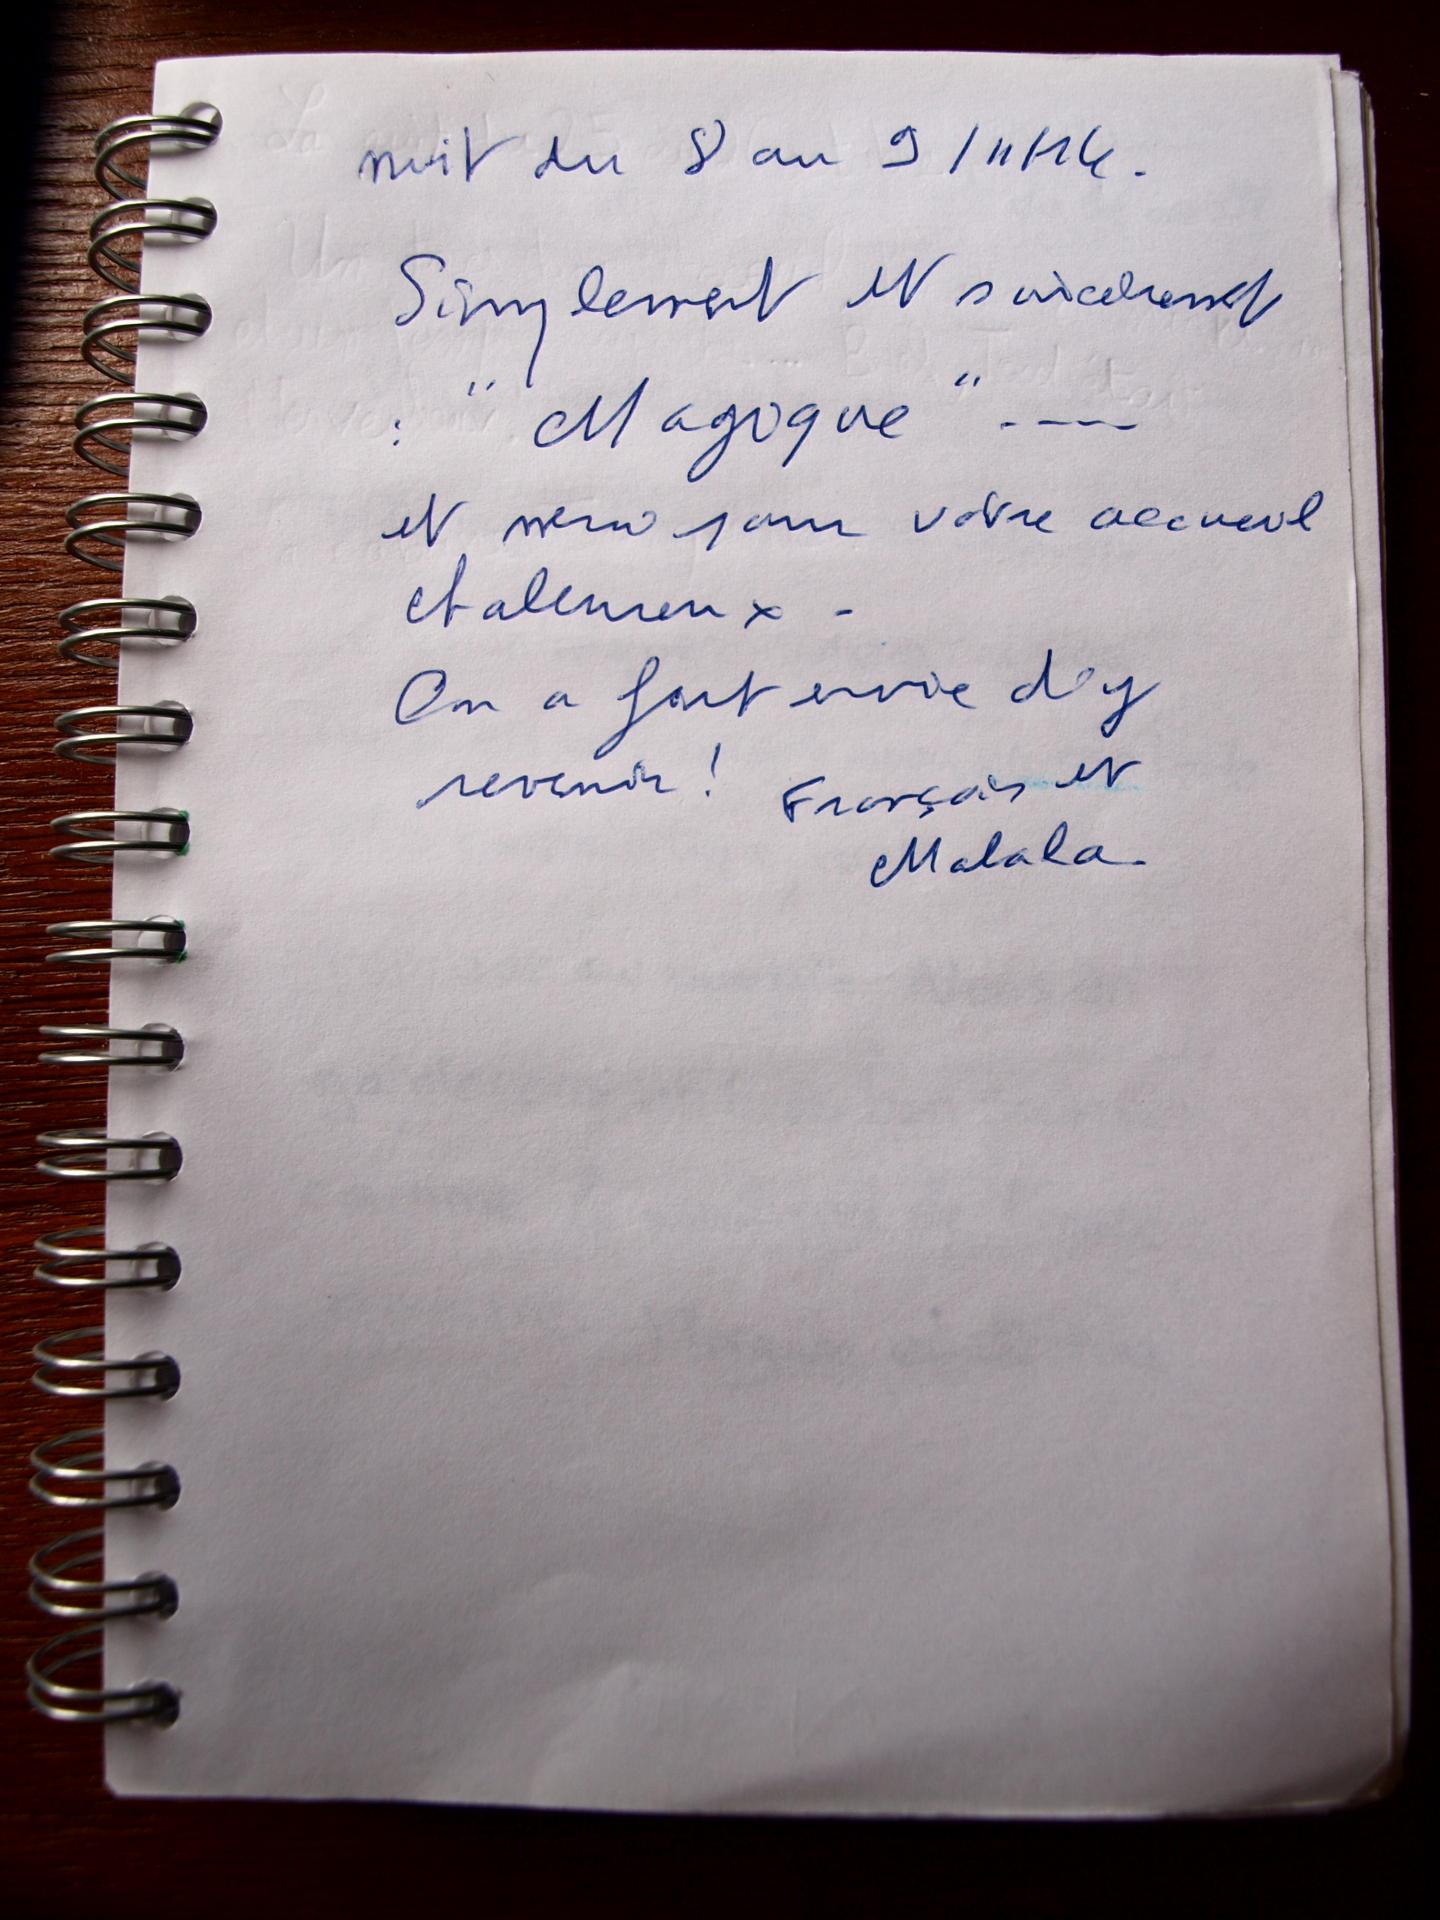 nuit du 8 au 9/11/14.
Simplement et sincèrement
: "Magique" ----
et merci pour votre accueil
chaleureux -
On a fort envie d'y
revenir ! François et
Malala.